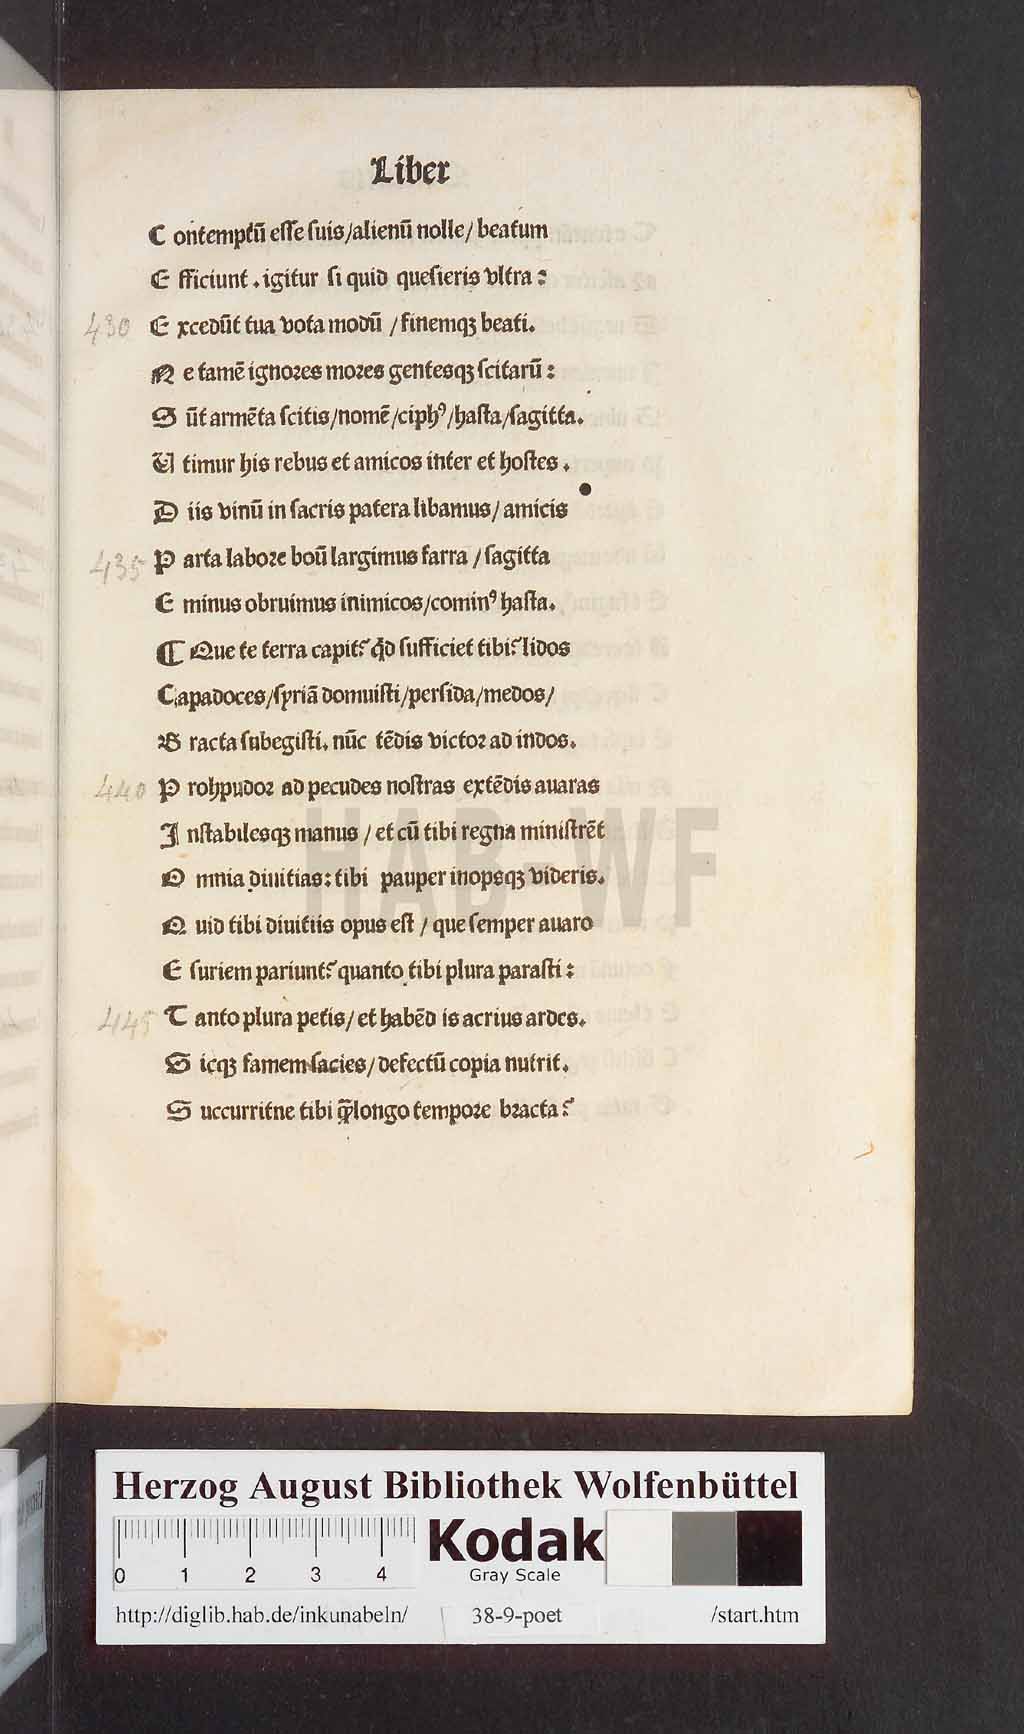 Liber
C ontemptū eſſe ſuis/alienū nolle/ beatum
E fficiunt. igitur ſi quid queſieris vltra:
430 E xcedūt tua vota modū /finemqꝫ beati.
N e tamē ignoꝛes moꝛes gentesqꝫ ſcitarū:
S ūt armēta ſcitis/nomē/ciphꝰ/haſta/ſagitta.
U timur his rebus et amicos inter et hoſtes.
D iis vinū in ſacris patera libamus/ amicis
435 P arta laboꝛe boū largimus farra /ſagitta
E minus obruimus inimicos/cominꝰ haſta.
¶ Que te terra capit? qd̄ ſufficiet tibi? lidos
Capadoces/ſyriā domuiſti/perſida/medos/
B racta ſubegiſti. nūc tēdis victoꝛ ad indos.
440 P rohpudoꝛ ad pecudes noſtras extēdis auaras
I nſtabilesqꝫ manus / et cū tibi regna miniſtrēt
O mnia diuitias: tibi pauper inopsqꝫ videris.
Q uid tibi diuitiis opus eſt / que ſemper auaro
E ſuriem pariunt? quanto tibi plura paraſti:
445 T anto plura petis/ et habēd is acrius ardes.
S icqꝫ famem ſacies/defectū copia nutrit.
S uccurritne tibi q̄longo tempoꝛe bꝛacta?
HAB-WF
Herzog August Bibliothek Wolfenbüttel
0 1 2 3 4
Kodak
Gray Scale
http://diglib.hab.de/inkunabeln/ 38-9-poet /start.htm